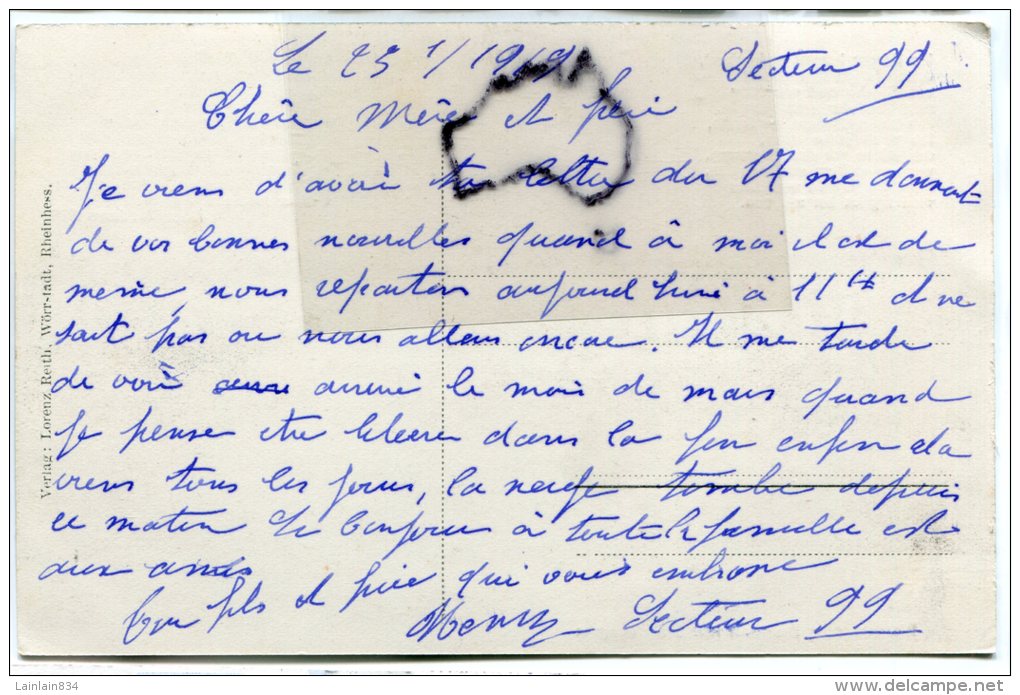 Le 25 1/1919 Secteur 99
Chère Mère et père
Je viens d'avoir ta lettre du 17 me donnant
de vos bonnes nouvelles quand à moi il est de
meme, nous repartons aujourd hui à 11 H et ne
sait pas ou nous allons encore. Il me tarde
de voir arrivé le mois de mars quand
je pense etre liberé dans la fin enfin sa
viens tous les jours, la neige tombe depuis
ce matin le bonjour à toute la famille et
aux amis
Ton fils et frère qui vous embrasse
Henry Secteur 99
Verlag: Lorenz Reith, Wörrstadt, Rheinhess.
Lainlain834
www.delcampe.net